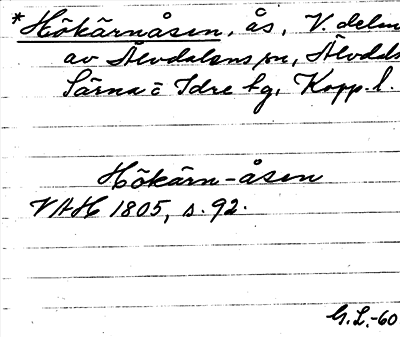 *Hökärnåsen, ås, V. delen
av Älvdalens sn, Älvdals
Särna o Idre tg, Kopp. l.
Hökärn-åsen
VAH 1805, s. 92.
G.L.-60